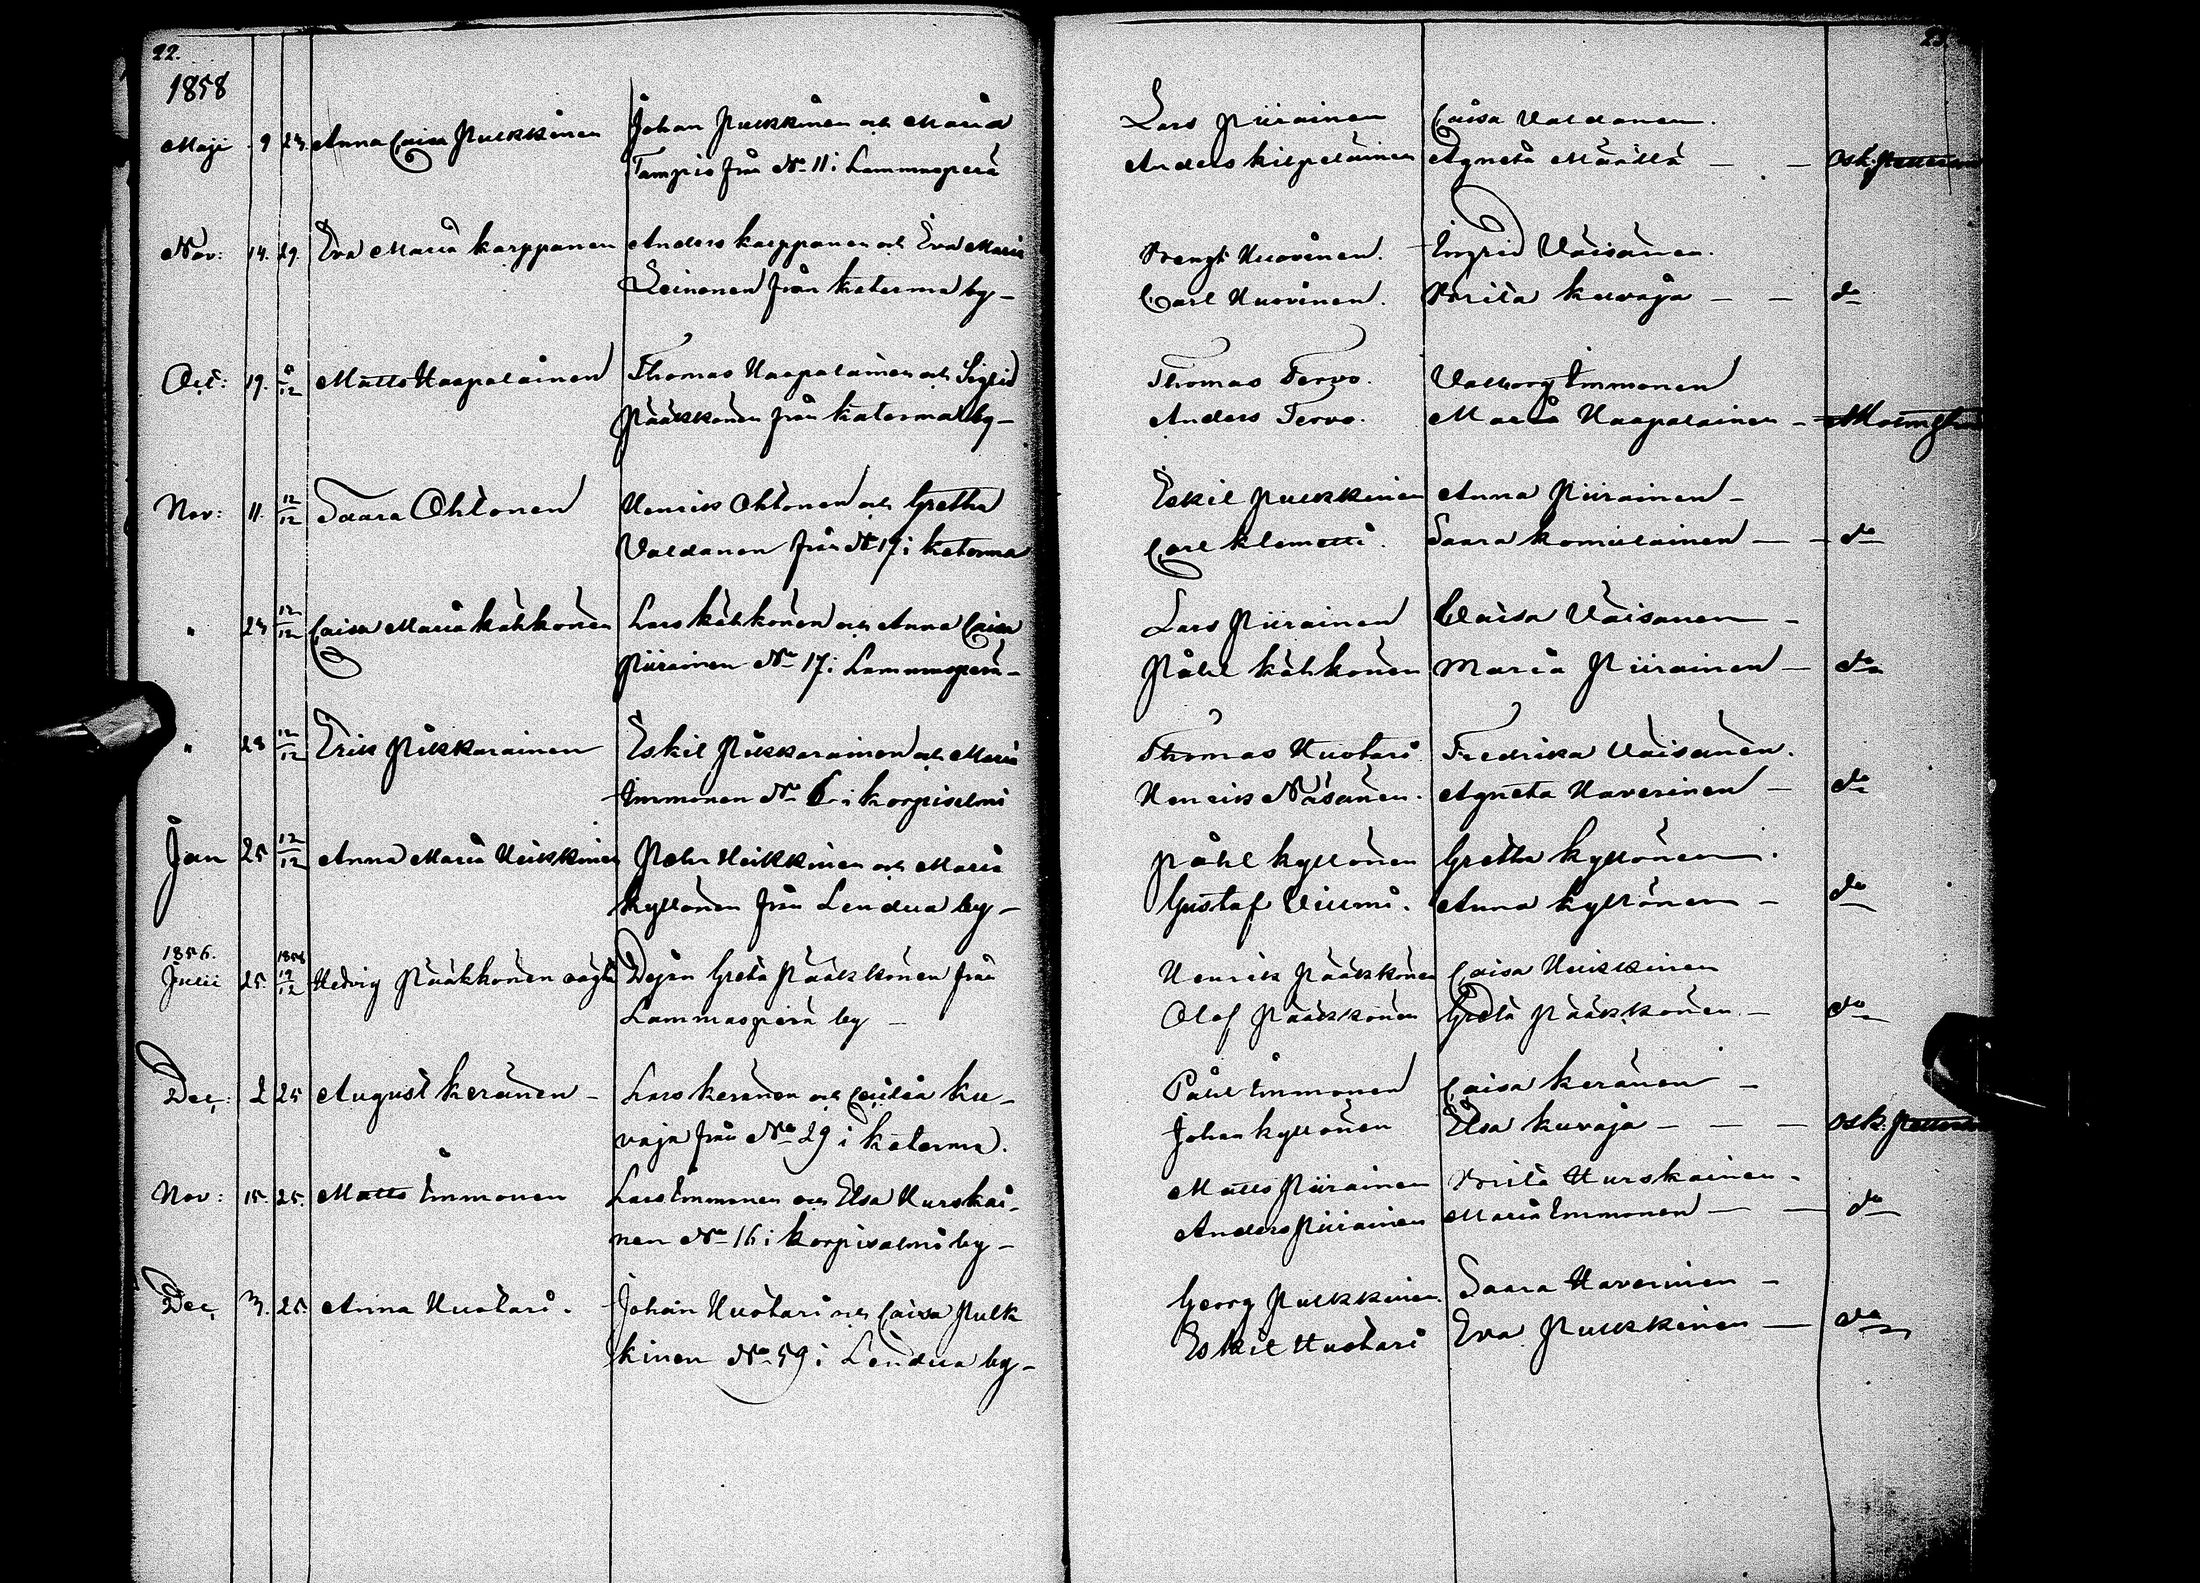 22.
1858
Maji 9 23 Anna Caisa Pulkkinen Johan Pulkkinen och Maria
Tampio från No 11 i Lammasperä
Lars Piirainen Caisa Valdanen.
Anders Kilpeläinen Agneta Määttä — — Osk:
Nov: 14. 29. Eva Maria Karppanen Anders Karppanen och Eva Maria
Leinonen från Katerma by –
Brengt Huovinen. Ingrid Väisänen.
Carl Huovinen. Brita Kuvaja — — do
Oct: 19. 5/12 Matts Haapalainen Thomas Haapalainen och Sigrid
Pääkkönen från Katerma by –
Thomas Tervo. Valborg Immonen
Anders Tervo. Maria Haapalainen –
Nov: 11. 12/12 Saara Ohtonen Henrik Ohtonen och Gretha
Valdanen från No 19 i Katerma
Eskil Pulkkinen Anna Piirainen –
Carl Klemetti. Saara Komulainen — – do
" 23 12/12 Caisa Maria Kähkönen Lars Kähkönen och Anna Caisa
Piirainen No 17 i Lammasperä –
Lars Piirainen Caisa Väisänen –
Påhl Kähkönen Maria Piirainen — do
" 28 12/12 Erik Pikkarainen Eskil Pikkarainen och Maria
Immonen No 6 i Korpisalmi
Thomas Huotari Fredrika Väisänen.
Henrik Näsänen. Agneta Haverinen – do
Jan 25 12/12 Anna Maria Heikkinen Petter Heikkinen och Maria
Kyllönen från Lendua by –
Påhl Kyllönen Gretha Kyllönen.
Gustaf Viiumi. Anna Kyllönen – do
1856. 1858
Julii 25 19/12 Hedvig Pääkkönen oägta Dejan Greta Pääkkönen från
Lammasperä by –
Henrik Pääkkönen Caisa Heikkinen
Olof Pääkkönen Greta Pääkkönen — do
Dec: 2 25 August Keränen – Lars Keränen och Cecilia Ku-
vaja från No 29 i Katerma.
Påhl Immonen Caisa Keränen –
Johan Kyllönen Elsa Kuvaja – — — Osk:
Nov: 15. 25. Matts Immonen Lars Immonen och Elsa Hurskai-
nen No 16 i Korpisalmi by –
Matts Piirainen Brita Hurskainen –
Anders Piirainen Maria Immonen — — do
Dec, 3. 25. Anna Huotari. Johan Huotari och Caisa Pulk
kinen No 59 i Lendua by –
Georg Pulkkinen. Saara Haverinen –
Eskil Huotari Eva Pulkkinen — do